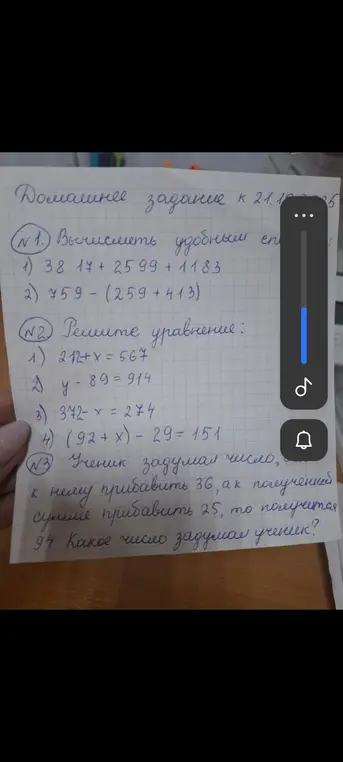 Домашнее задание к 21.1
№1. Вычислить удобным
1) 3817 + 2599 + 1183
2) 759 - (259 + 413)
№2 Решите уравнение:
1) 212 + x = 567
2) y - 89 = 914
3) 372 - x = 274
4) (92 + x) - 29 = 151
№3 Ученик задумал число,
к нему прибавить 36, а к полученной
сумме прибавить 25, то получится
94 Какое число задумал ученик?